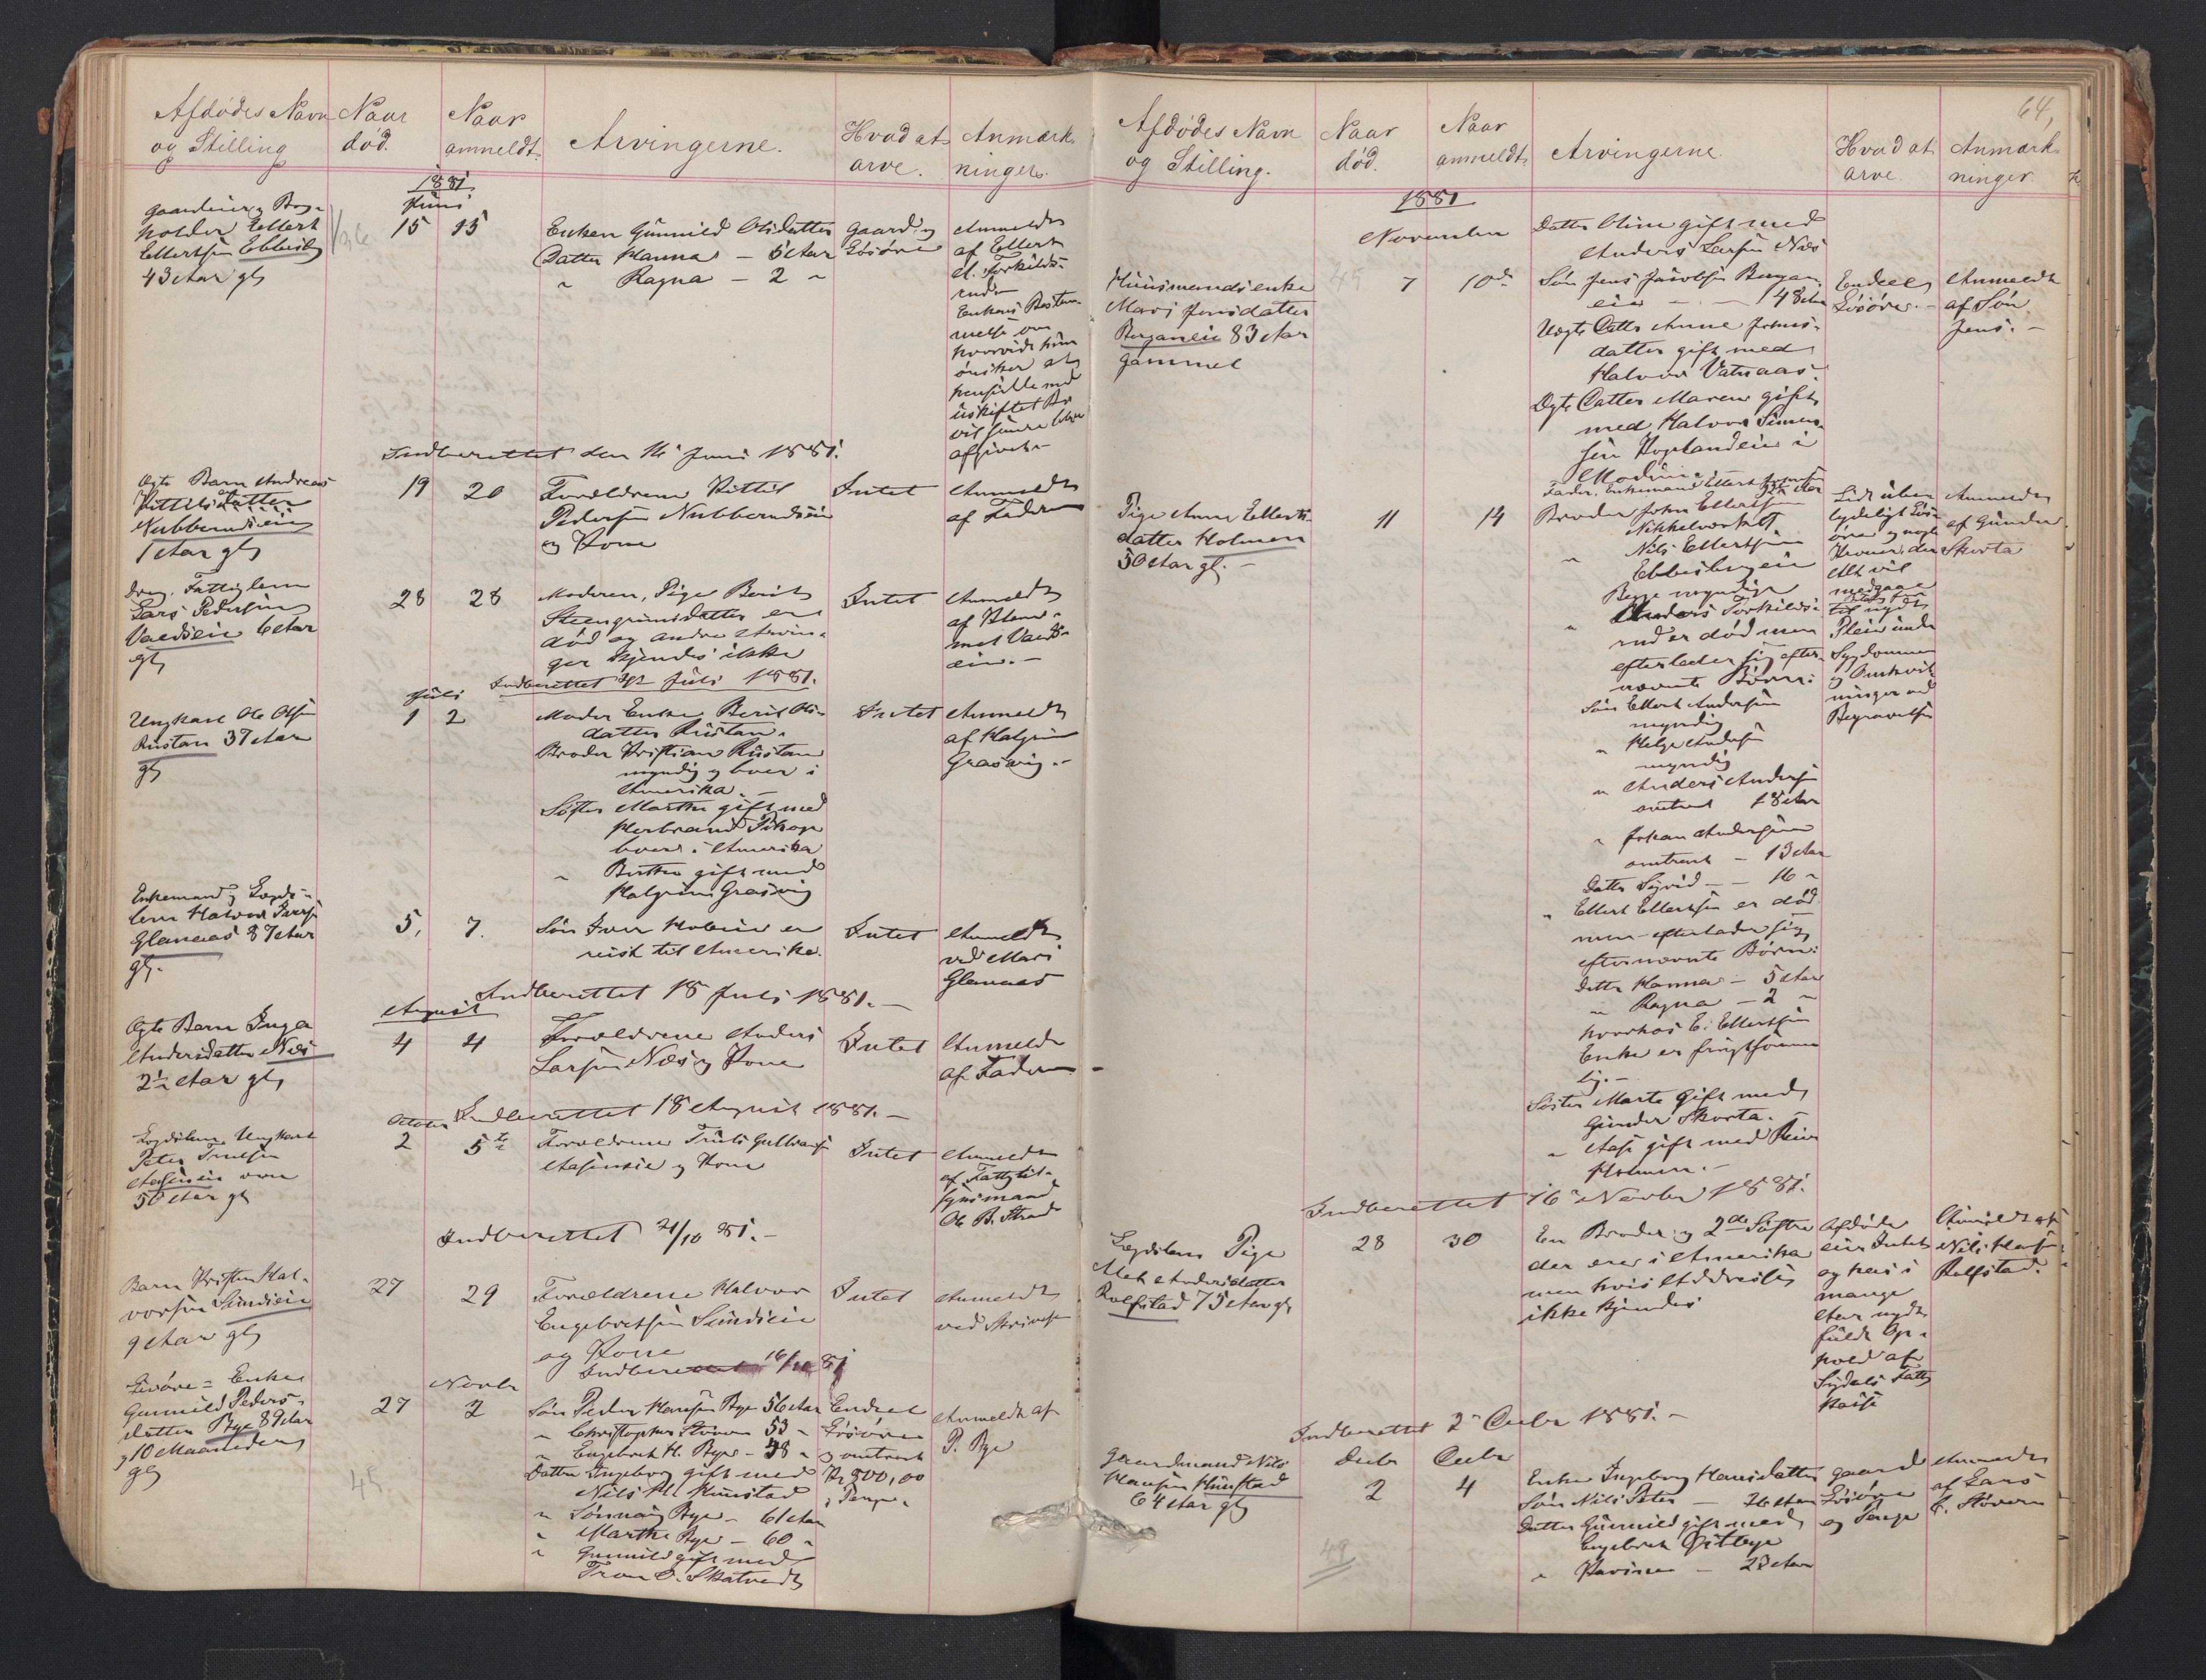 Afdødes Navn
og Stilling
Naar
død.
Naar
anmeldt.
Arvingerne.
Hvad at
arve.
Anmærk-
ninger.
1881
Juni
Gaardeier og Brug-
holder Ellert
Ellertsen Ebbesby
43 Aar gl
15
15
Enken Gunnild Olsdatter
Datter Hanna – 5 Aar
" Ragna – 2 "
Gaard og
Løsøre
Anmeldt
af Ellert
A. Torkilds-
rud
Enkens Bestem-
melse om
hvorvidt hun
ønsker at
hensidde med
uskiftet Bo
vil senere blive
afgivet
Indberettet den 16 Juni 1881.
Ægte Barn Andreas
Kittilsdatter
Nubberudeie
1 Aar gl
19
20
Forældrene Kittil
Pedersen Nubberudeie
og Kone
Intet
Anmeldt
af Faderen
Dreng, Fattiglem
Lars Pedersen
6 Aar
gl
28
28
Moderen, Pige Berit
Steengrimsdatter er
død og andre Arvin-
ger kjendes ikke
Intet
Anmeldt
af
Indberettet Juli 1881.
Juli
Ungkarl Ole Olsen
Rustan 37 Aar
gl
1
2
Moder Enke Berit Ols-
datter Rustan.
Broder Kristian Rustan
myndig og boer i
Amerika. –
Søster Marthe gift med
Herbrand
boer i Amerika
" gift med
Halgrim Grasvig
Intet
Anmeldt
af Halgrim
Grasvig. –
Enkemand og Lægds-
lem Halvor Iversen
Glanaas 87 Aar
gl.
5,
7.
Søn Iver er
reist til Amerika.
Intet
Anmeldt
ved Mari
Glanaas
Indberettet 18 Juli 1881. –
August
Ægte Barn Inga
Andersdatter Næs
2½ Aar gl,
4
4
Forældrene Anders
Larsen Næs og Kone
Intet
Anmeldt
af Faderen
Indberettet 18 August 1881. –
October
Lægdslem Ungkarl
Peter Trulsen
over
50 Aar gl
2
5te
Forældrene Truls Gulbrandsen
og Kone
Intet
Anmeldt
af Fattigtil-
synsmand
Ole B. Strand
Indberettet 21/10 81. –
Barn Kristen Hal-
vorsen Sundeie
9 Aar gl
27
29
Forældrene Halvor
Engebretsen Sundeie
og Kone
Intet
Anmeldt
ved Skrivelse
Indberettet 16/11 81
Novbr
Enke
Gunnild Peders-
datter Bye 89 Aar
og 10 Maaneder
gl
27
2
Søn Peder Hansen Bye 56 Aar
" Christopher Støveren 53 "
" Engebret H. Bye – 48 "
Datter Ingeborg gift med
Nils H. Hunstad
" Sønnøv Bye – 61 Aar
" Marthe Bye – 60 "
" Gunnild gift med
Tron O. Skatvedt
Endeel
Løsøre
og omtrent
Kr 800,00
i Penge.
Anmeldt af
P. Bye
45
64,
Afdødes Navn
og Stilling.
Naar
død.
Naar
anmeldt.
Arvingerne.
Hvad at
arve.
Anmærk-
ninger.
1881
November
Datter Oline gift med
Anders Larsen Næs
Huusmandsenke
Mari Jensdatter
Berganeie 83 Aar
gammel
45
7
10de
Søn Jens Jacobsen Bergan-
eie – – 48 Aar
Uægte Datter Anne Johns-
datter gift med
Halvor Vatnaas.
Ægte Datter Maren gift
med Halvor Simen-
sen Hoglandeie i
Modum
Endeel
Løsøre. –
Anmeldt
af Søn
Jens. –
Pige Anne Ellerts-
datter Holmen
50 Aar gl. –
11
14
Fader, Enkemand Ellert
Broder John Ellertsen
Nikkelværket
" Nils Ellertsen
Ebbesbyeie
Begge myndige
" Anders Torkilds-
rud er død men
efterlader sig efter-
nævnte Børn:
Søn Ellert Andersen
myndig
" Helge Andersen
myndig
" Anders Andersen
omtrent 18 Aar
" Johan Andersen
omtrent – 13 Aar
Datter Sigrid – – 16 "
" Ellert Ellertsen er død
men efterlader sig
efternævnte Børn:
Datter Hanna – 5 Aar
" Ragna – 2 "
hvorhos E. Ellertsen
Enke er frugtsomme
lig. –
Søster Marte gift med
Gunder Skorta.
" Aase gift med
Holmen. –
Lidt ube-
tydeligt Løs-
øre og nogle
Kroner, der
Alt vil
medgaae
til nydt
Pleie under
Sygdommen
og Omkost-
ninger ved
Begravelsen
Anmeldt
af Gunder
Skorta
Indberettet 16 Novbr 1881.
Lægdslem Pige
Andersdatter
Rolfstad 75 Aar gl
28
30
En Broder og 2de Søstre
der ere i Amerika
men hvis Addresse
ikke kjendes
Afdøde
eier Intet
og har i
mange
Aar nydt
fuldt Op-
hold af
Sigdals Fattig
kasse
Anmeldt af
Nils
Rolfstad.
Indberettet 2 Decbr 1881. –
Decbr
Decbr
Gaardmand Nils
Hansen Hunstad
64 Aar gl
2
4
Enke Ingeborg Hansdatter
Søn Nils Peter – 26 Aar
Datter Gunnild gift med
Engebret
" Karine – 23 Aar
Gaard
Løsøre
og Penge
Anmeldt
af Lars
C. Støveren
49